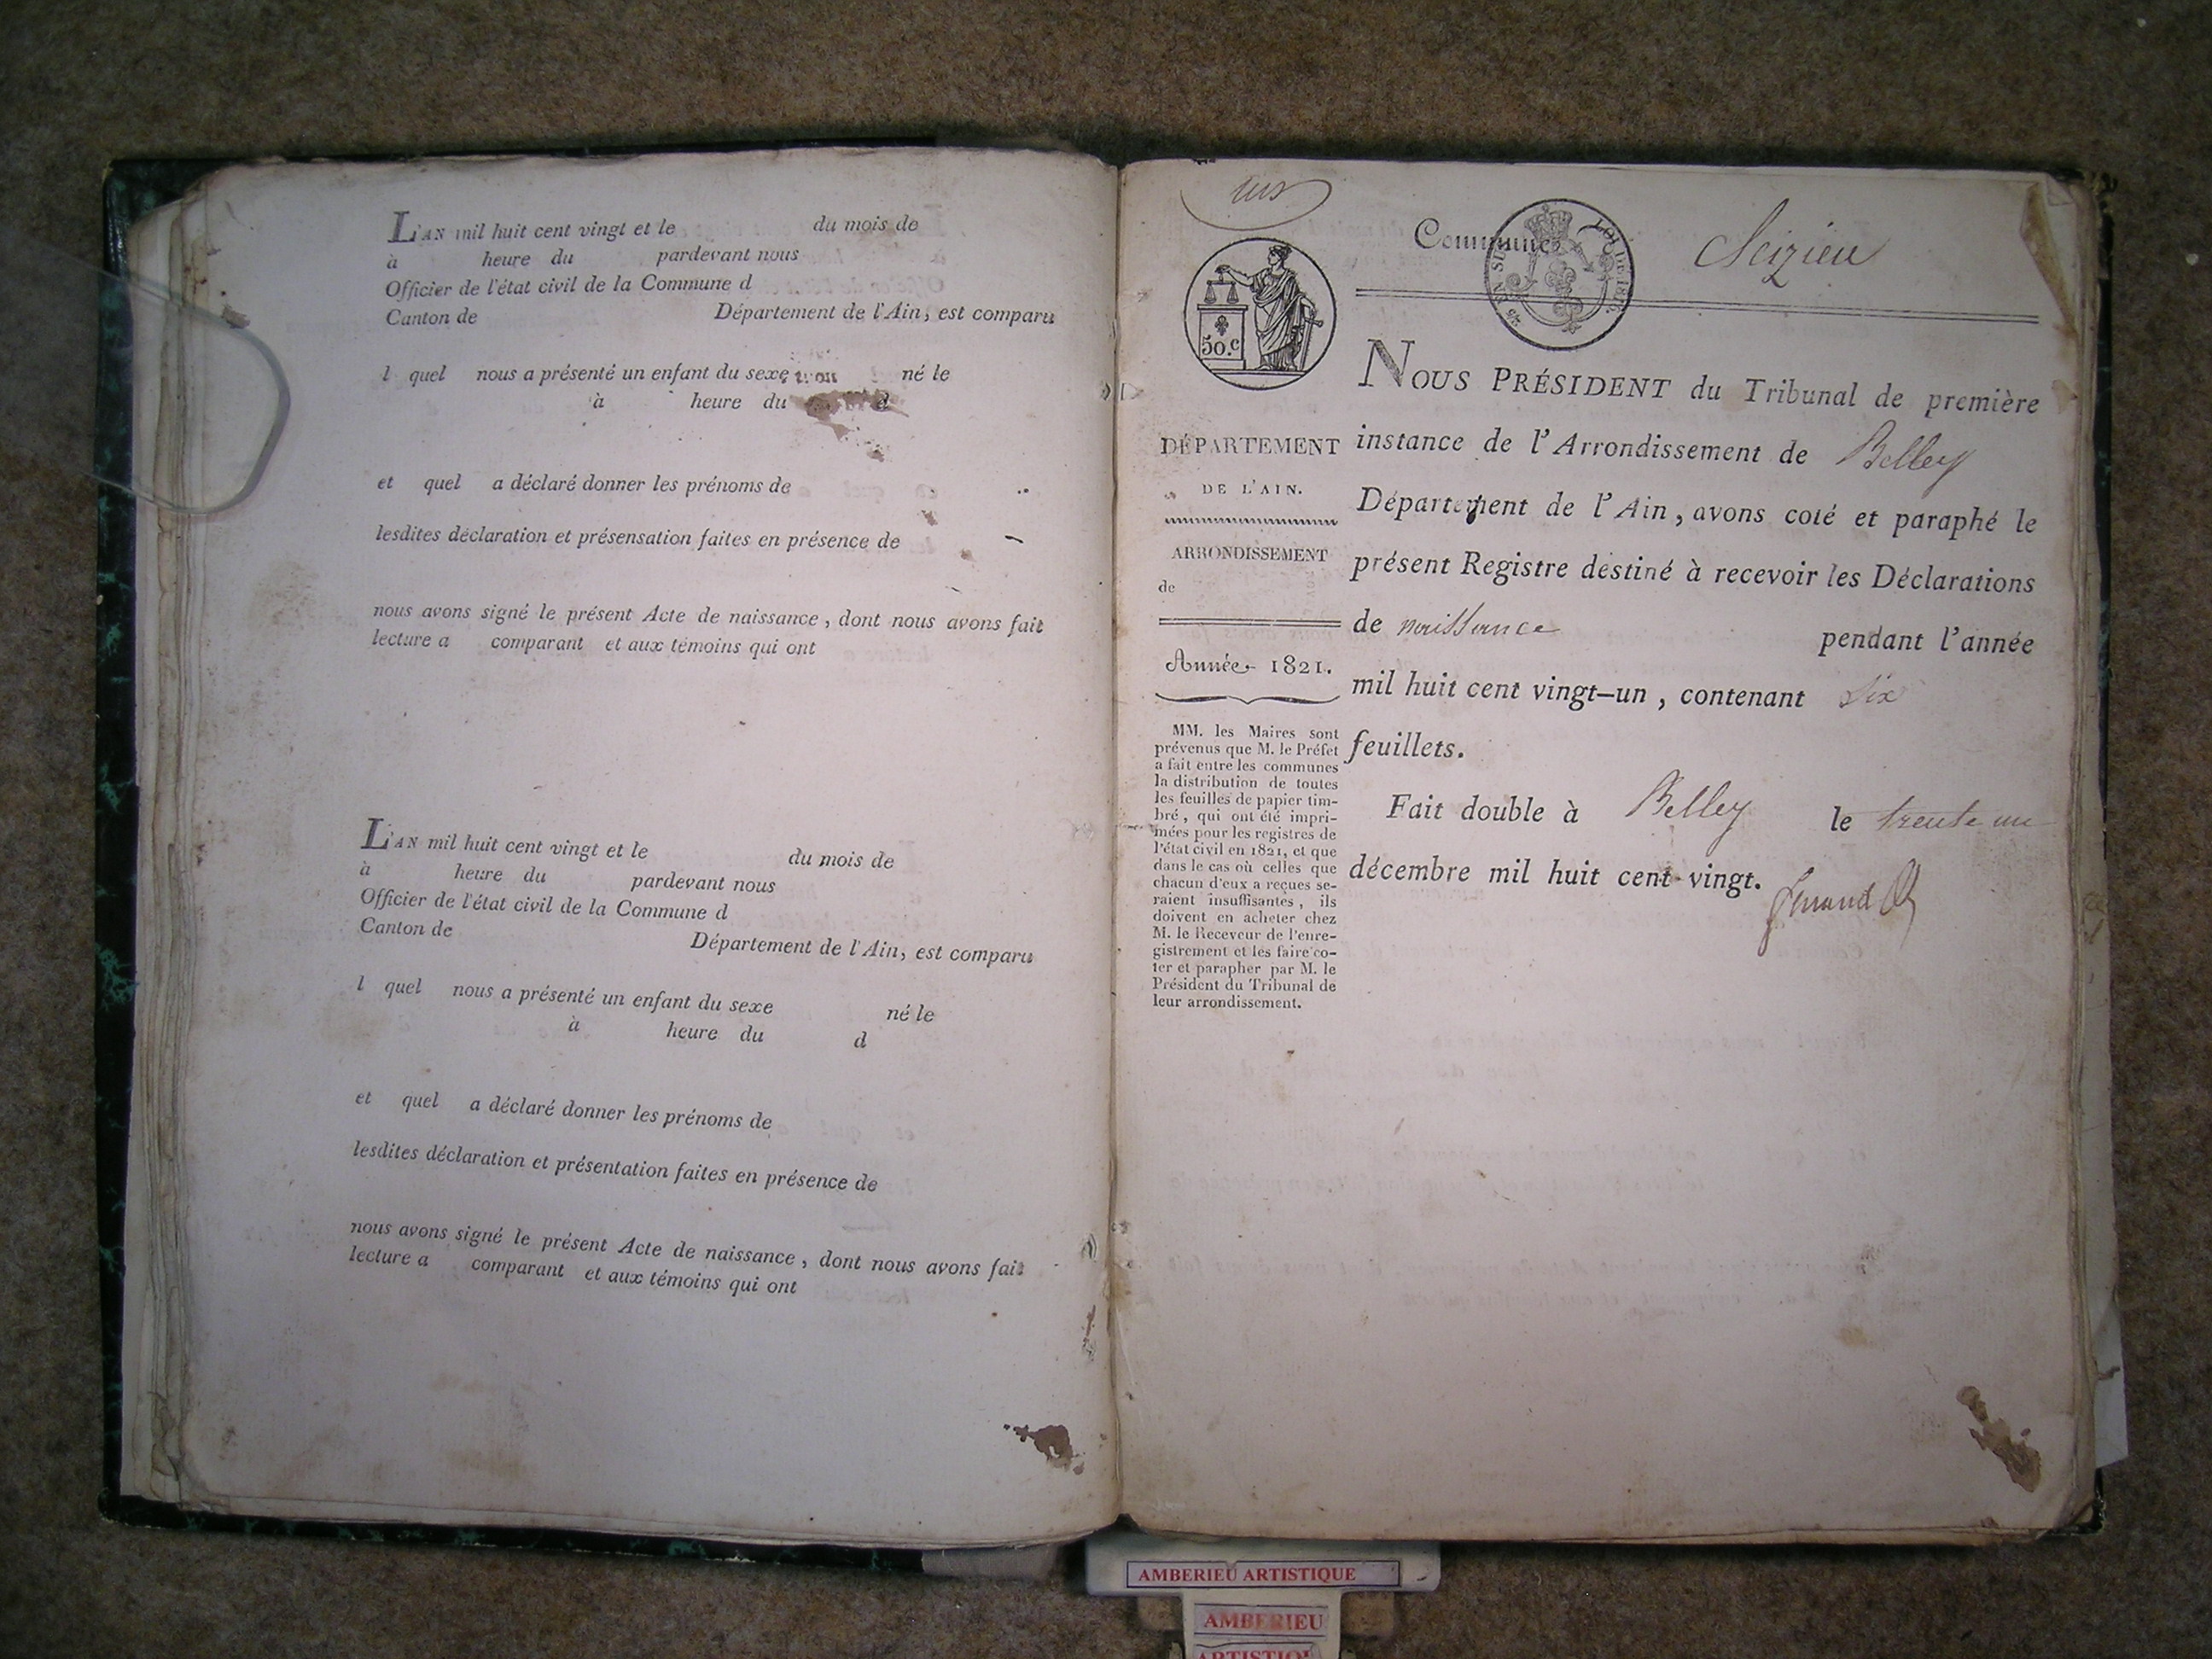 L'AN mil huit cent vingt et le du mois de
à heure du pardevant nous
Officier de l'état civil de la Commune d
Canton de Département de l'Ain, est comparu
l quel nous a présenté un enfant du sexe né le
à heure du d
et quel a déclaré donner les prénoms de
lesdites déclaration et présensation faites en présence de
nous avons signé le présent Acte de naissance, dont nous avons fait
lecture a comparant et aux témoins qui ont
L'AN mil huit cent vingt et le du mois de
à heure du pardevant nous
Officier de l'état civil de la Commune d
Canton de
Département de l'Ain, est comparu
l quel nous a présenté un enfant du sexe né le
à heure du d
et quel a déclaré donner les prénoms de
lesdites déclaration et présentation faites en présence de
nous avons signé le présent Acte de naissance, dont nous avons fait
lecture a comparant et aux témoins qui ont
50.c
DÉPARTEMENT
DE L'AIN.
ARRONDISSEMENT
de
Année 1821.
MM. les Maires sont
prévenus que M. le Préfet
a fait entre les communes
la distribution de toutes
les feuilles de papier tim-
bré, qui ont été impri-
mées pour les registres de
l'état civil en 1821, et que
dans le cas où celles que
chacun d'eux a reçues se-
raient insuffisantes, ils
doivent en acheter chez
M. le Receveur de l'enre-
gistrement et les faire co-
ter et parapher par M. le
Président du Tribunal de
leur arrondissement.
Commune Seizieu
NOUS PRÉSIDENT du Tribunal de première
instance de l'Arrondissement de Belley
Département de l'Ain, avons coté et paraphé le
présent Registre destiné à recevoir les Déclarations
de naissance pendant l'année
mil huit cent vingt-un, contenant Six
feuillets.
Fait double à Belley le trente un
décembre mil huit cent vingt.
AMBERIEU ARTISTIQUE
AMBERIEU
ARTISTIQ